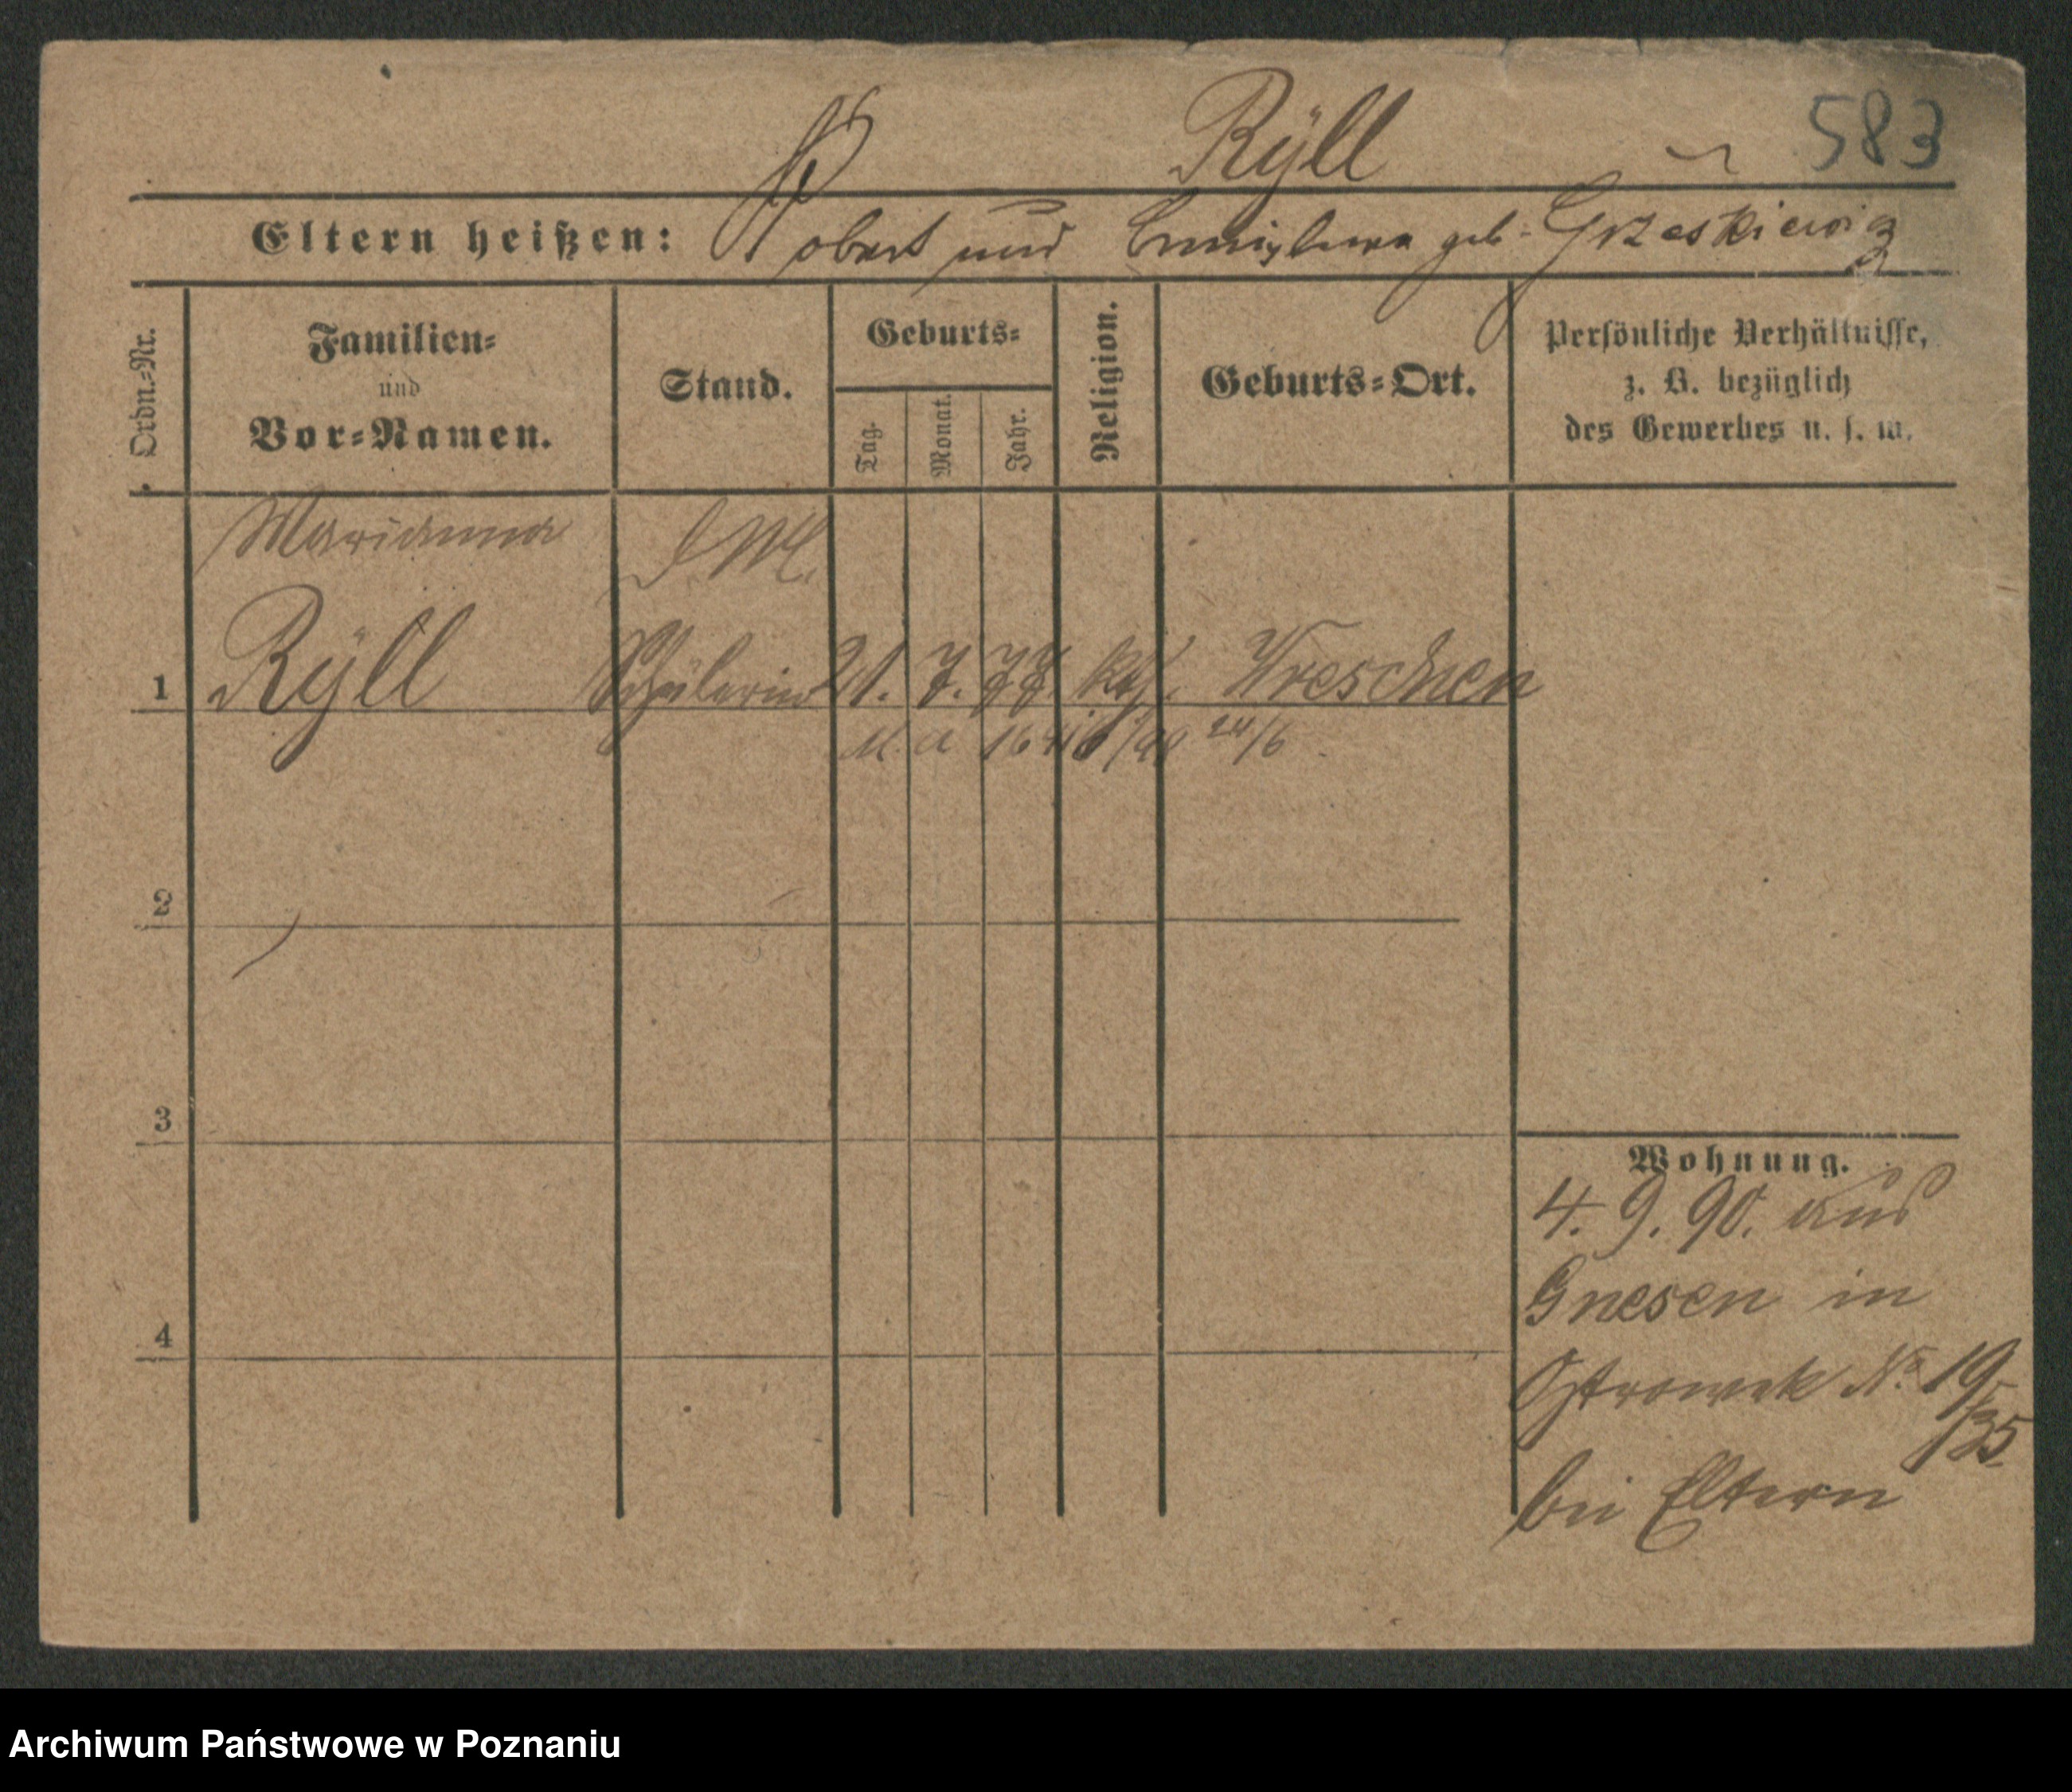 Rÿll 583
Eltern heißen: Robert und geb. Grzeskiewicz
Ordn.-Nr.
Familien-
und
Vor-Namen.
Stand.
Geburts-
Tag.
Monat.
Jahr.
Religion.
Geburts-Ort.
Persönliche Verhältnisse,
z. B. bezüglich
des Gewerbes u. s. w.
Marianna
1 Rÿll Schülerin 21. 7. 77 kth. Wreschen
24/6
2
3
4
Wohnung.
4. 9. 90. aus
Gnesen in
Ostrowek No. 19/35
bei Eltern
Archiwum Państwowe w Poznaniu